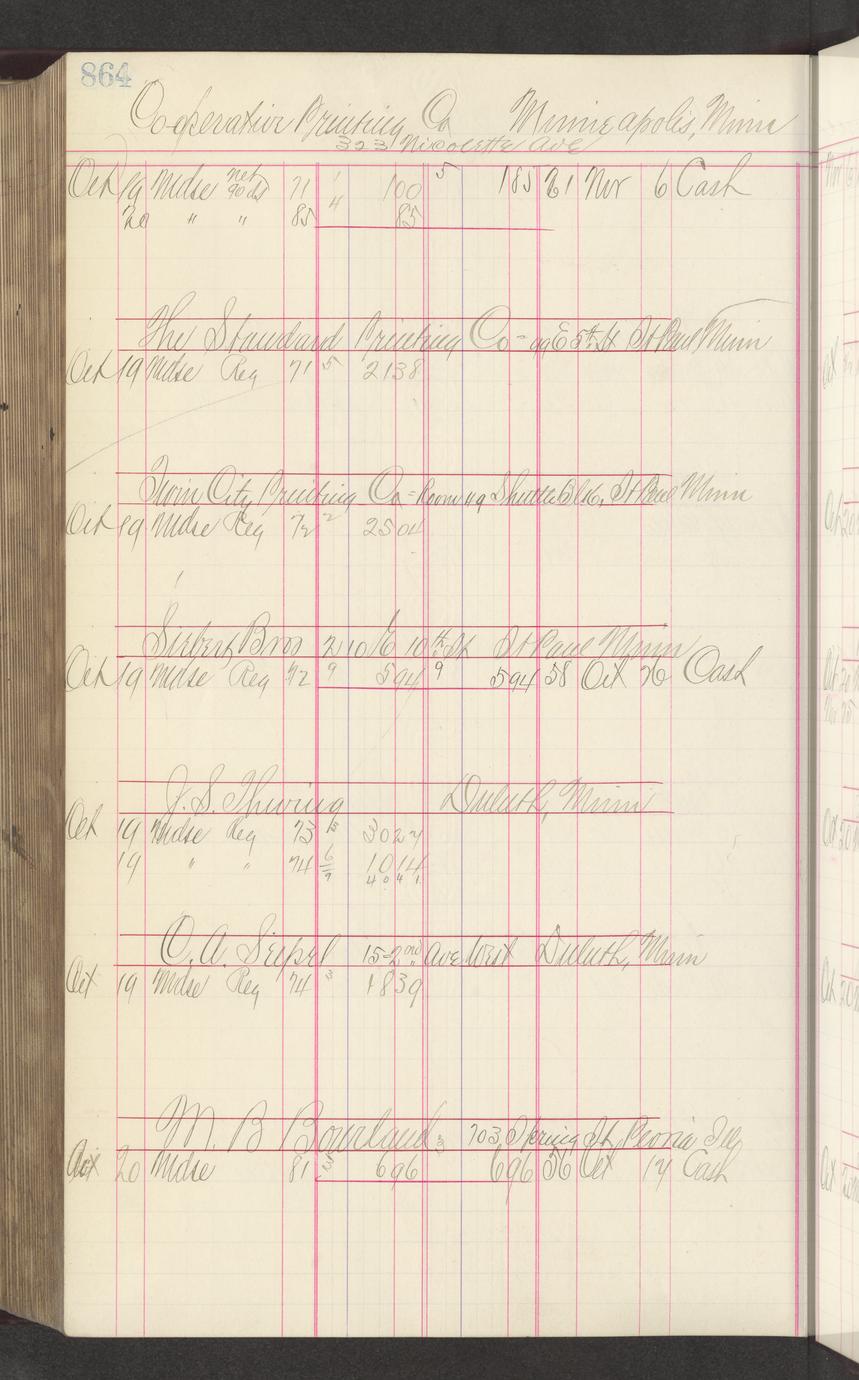 864
Cooperative Printing Co Minneapolis, Minn
323 Nicolette Ave
Oct 19 Mdse net 90 ds 71 1 100 5 185 61 Nov 6 Cash
20 " " 85 4 85
The Standard Printing Co = 99 E 5th St St Paul Minn
Oct 19 Mdse Reg 71 5 2138
Twin City Printing Co = Room 49 Bldg, St Paul Minn
Oct 19 Mdse Reg 72 2 2504
Siebert Bros 210 E 10th St St Paul Minn
Oct 19 Mdse Reg 72 9 594 9 594 58 Oct 26 Cash
J. S. Thwing Duluth, Minn
Oct 19 Mdse Reg 73 3027
19 " " 74 6 1014
7 4041
O. A. Seipel 15-2nd Ave West Duluth, Minn
Oct 19 Mdse Reg 74 3 1839
M. B Bourland 703 Spring St, Peoria Ill
Oct 20 Mdse 81 3 696 3 696 56 Oct 17 Cash